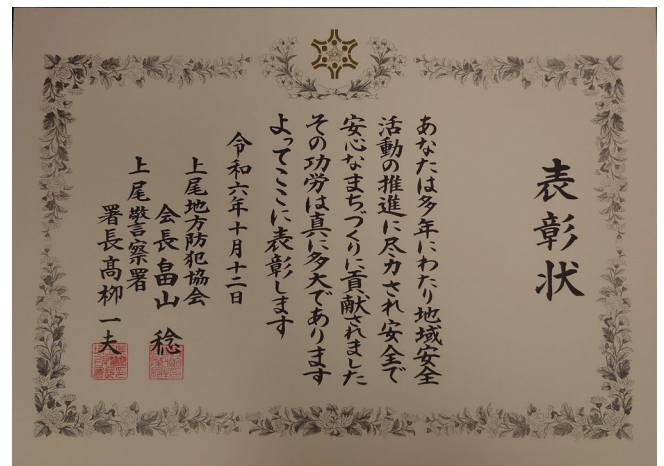 表彰状
あなたは多年にわたり地域安全
活動の推進に尽力され安全で
安心なまちづくりに貢献されました
その功労は真に多大であります
よってここに表彰します
令和六年十月十二日
上尾地方防犯協会
会長畠山稔
上尾警察署
署長髙柳一夫